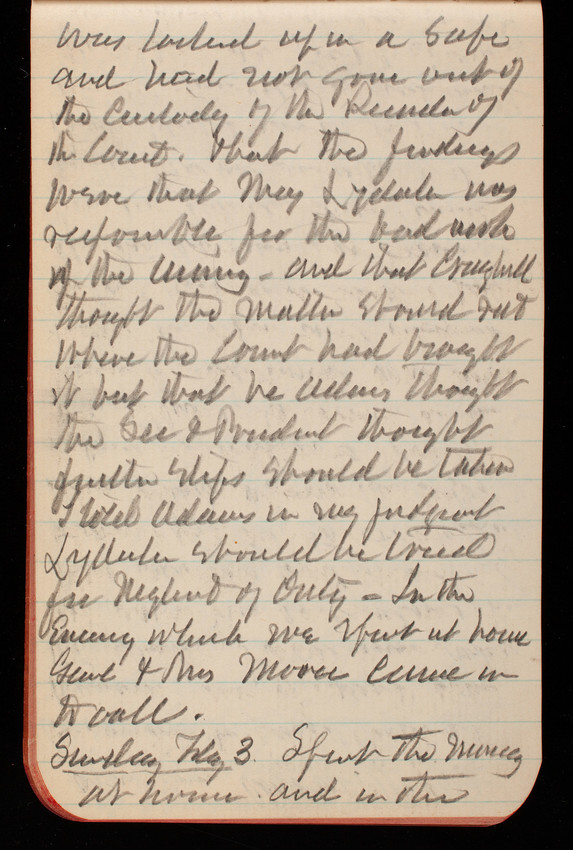 was locked up in a Safe
and had not gone out of
the Custody of the Recorder of
the Court. That the findings
were that Maj Lydecker was
responsible for the bad work
of the lining - and that Craighill
thought the matter should rest
where the Court had brought
it but that he Adams thought
the Sec & President thought
further steps should be taken
I told Adams in my judgment
Lydecker should be tried
for Neglect of Duty - In the
Evening which we spent at home
Genl & Mrs Moore came in
to call.
Sunday Feby 3. Spent the morning
at home and in the